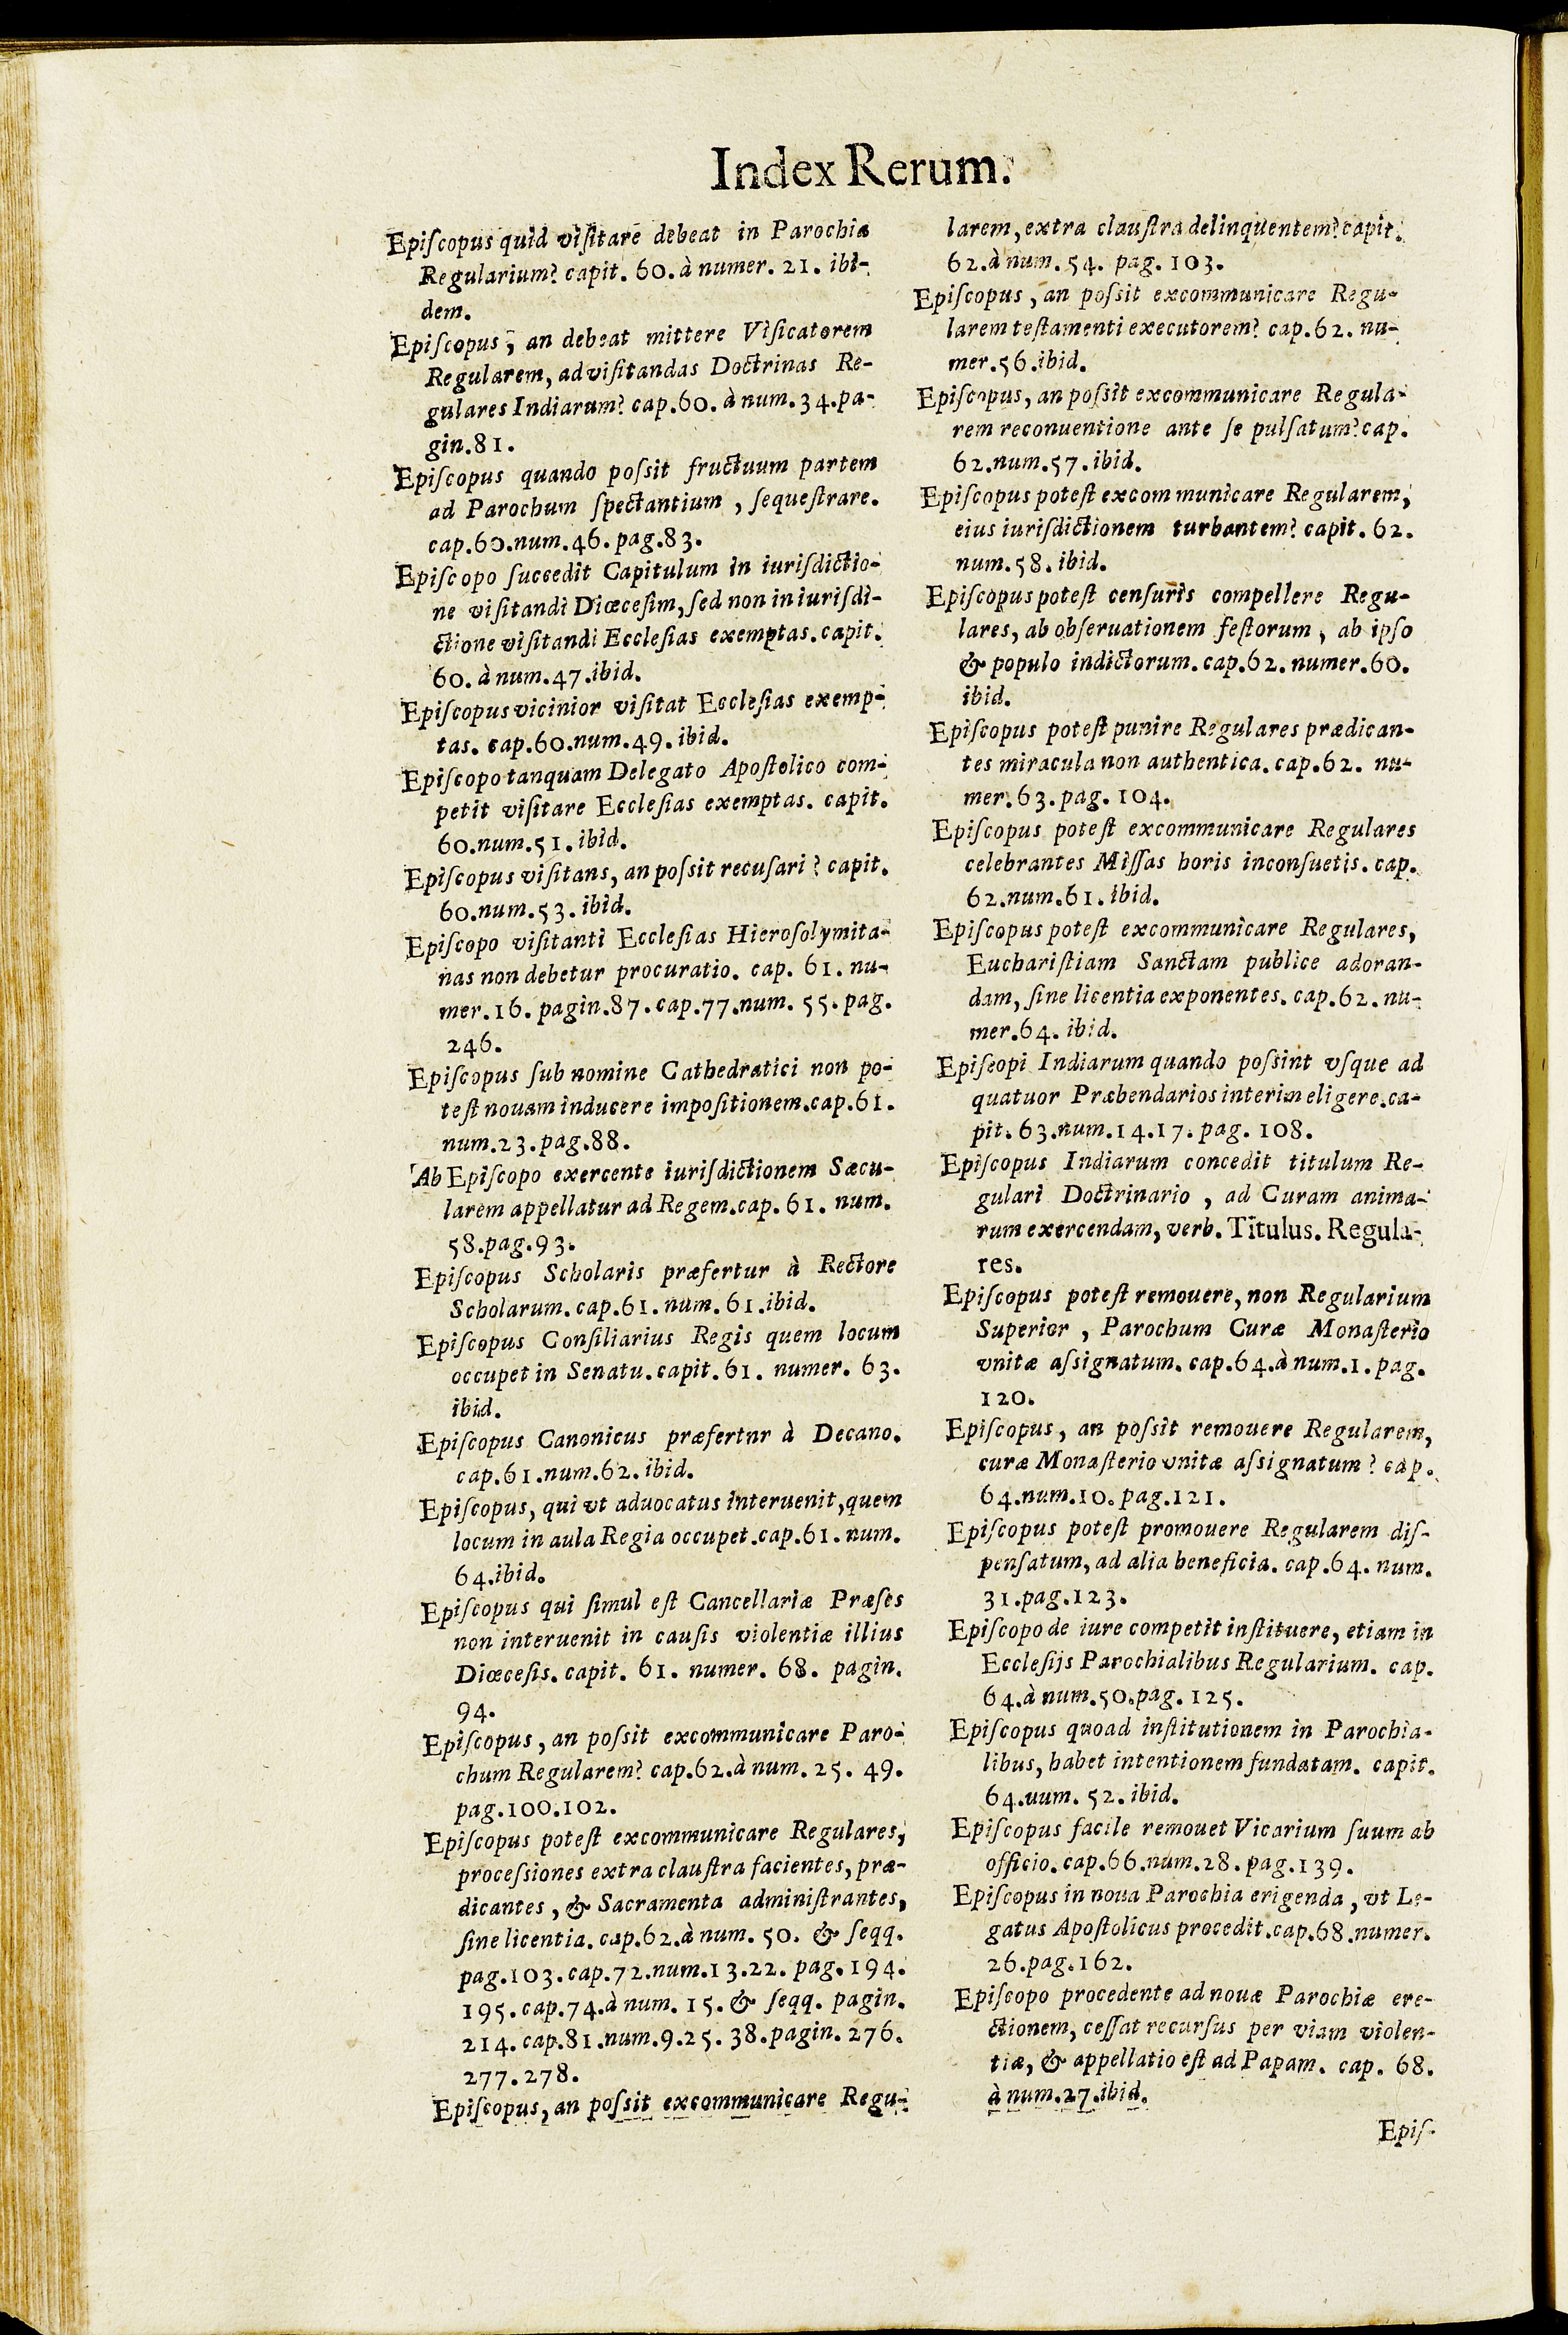 Index Rerum.
Episcopus quid visitare debeat in Parochia
Regularium? capit. 60. à numer. 21. ibi-
dem.
Episcopus, an debeat mittere Visicatorem
Regularem, ad visitandas Doctrinas Re-
gulares Indiarum? cap.60. à num.34.pa-
gin.81.
Episcopus quando possit fructuum partem
ad Parochum spectantium, sequestrare.
cap.60.num.46.pag.83.
Episcopo succedit Capitulum in iurisdictio-
ne visitandi Diœcesim, sed non in iurisdi-
ctione visitandi Ecclesias exemptas. capit.
60. à num.47.ibid.
Episcopus vicinior visitat Ecclesias exemp-
tas. cap.60.num.49. ibid.
Episcopo tanquam Delegato Apostolico com-
petit visitare Ecclesias exemptas. capit.
60.num.51. ibid.
Episcopus visitans, an possit recusari? capit.
60.num.53. ibid.
Episcopo visitanti Ecclesias Hierosolymita-
nas non debetur procuratio. cap. 61. nu-
mer.16. pagin.87. cap.77.num. 55. pag.
246.
Episcopus sub nomine Cathedratici non po-
test nouam inducere impositionem.cap.61.
num.23.pag.88.
Ab Episcopo exercente iurisdictionem Sæcu-
larem appellatur ad Regem.cap. 61. num.
58.pag.93.
Episcopus Scholaris præfertur à Rectore
Scholarum. cap.61. num. 61.ibid.
Episcopus Consiliarius Regis quem locum
occupet in Senatu. capit.61. numer. 63.
ibid.
Episcopus Canonicus præfertnr à Decano.
cap.61.num.62. ibid.
Episcopus, qui vt aduocatus interuenit, quem
locum in aula Regia occupet.cap.61.num.
64.ibid.
Episcopus qui simul est Cancellariæ Præses
non interuenit in causis violentiæ illius
Diœcesis. capit. 61. numer. 68. pagin.
94.
Episcopus, an possit excommunicare Paro-
chum Regularem? cap.62.à num. 25. 49.
pag.100.102.
Episcopus potest excommunicare Regulares,
processiones extra claustra facientes, præ-
dicantes, & Sacramenta administrantes,
sine licentia. cap.62.à num. 50. & seqq.
pag.103.cap.72.num.13.22. pag.194.
195.cap.74.à num. 15. & seqq. pagin.
214. cap.81.num.9.25. 38.pagin. 276.
277.278.
Episcopus, an possit excommunicare Regu-
larem, extra claustra delinquentem? capit.
62.à num. 54. pag. 103.
Episcopus, an possit excommunicare Regu-
larem testamenti executorem? cap.62. nu-
mer.56.ibid.
Episcopus, an possit excommunicare Regula-
rem reconuentione ante se pulsatum? cap.
62.num.57.ibid.
Episcopus potest excommunicare Regularem,
eius iurisdictionem turbantem? capit. 62.
num.58. ibid.
Episcopus potest censuris compellere Regu-
lares, ab obseruationem festorum, ab ipso
& populo indictorum. cap.62. numer.60.
ibid.
Episcopus potest punire Regulares prædican-
tes miracula non authentica. cap.62. nu-
mer.63.pag. 104.
Episcopus potest excommunicare Regulares
celebrantes Missas horis inconsuetis. cap.
62.num.61. ibid.
Episcopus potest excommunicare Regulares,
Eucharistiam Sanctam publice adoran-
dam, sine licentia exponentes. cap.62. nu-
mer.64. ibid.
Episeopi Indiarum quando possint vsque ad
quatuor Præbendarios interim eligere.ca-
pit. 63.num.14.17. pag. 108.
Episcopus Indiarum concedit titulum Re-
gulari Doctrinario, ad Curam anima-
rum exercendam, verb. Titulus. Regula-
res.
Episcopus potest remouere, non Regularium
Superior, Parochum Curæ Monasterio
vnitæ assignatum. cap.64.à num.1. pag.
120.
Episcopus, an possit remouere Regularem,
curæ Monasterio vnitæ assignatum? cap.
64.num.10. pag.121.
Episcopus potest promouere Regularem dis-
pensatum, ad alia beneficia. cap.64. num.
31.pag.123.
Episcopo de iure competit instituere, etiam in
Ecclesijs Parochialibus Regularium. cap.
64.à num.50.pag. 125.
Episcopus quoad institutionem in Parochia-
libus, habet intentionem fundatam. capit.
64.uum. 52. ibid.
Episcopus facile remouet Vicarium suum ab
officio. cap.66.num.28.pag.139.
Episcopus in noua Parochia erigenda, vt Le-
gatus Apostolicus procedit.cap.68.numer.
26.pag.162.
Episcopo procedente ad nouæ Parochiæ ere-
ctionem, cessat recursus per viam violen-
tiæ, & appellatio est ad Papam. cap. 68.
à num.27.ibid.
Epis-